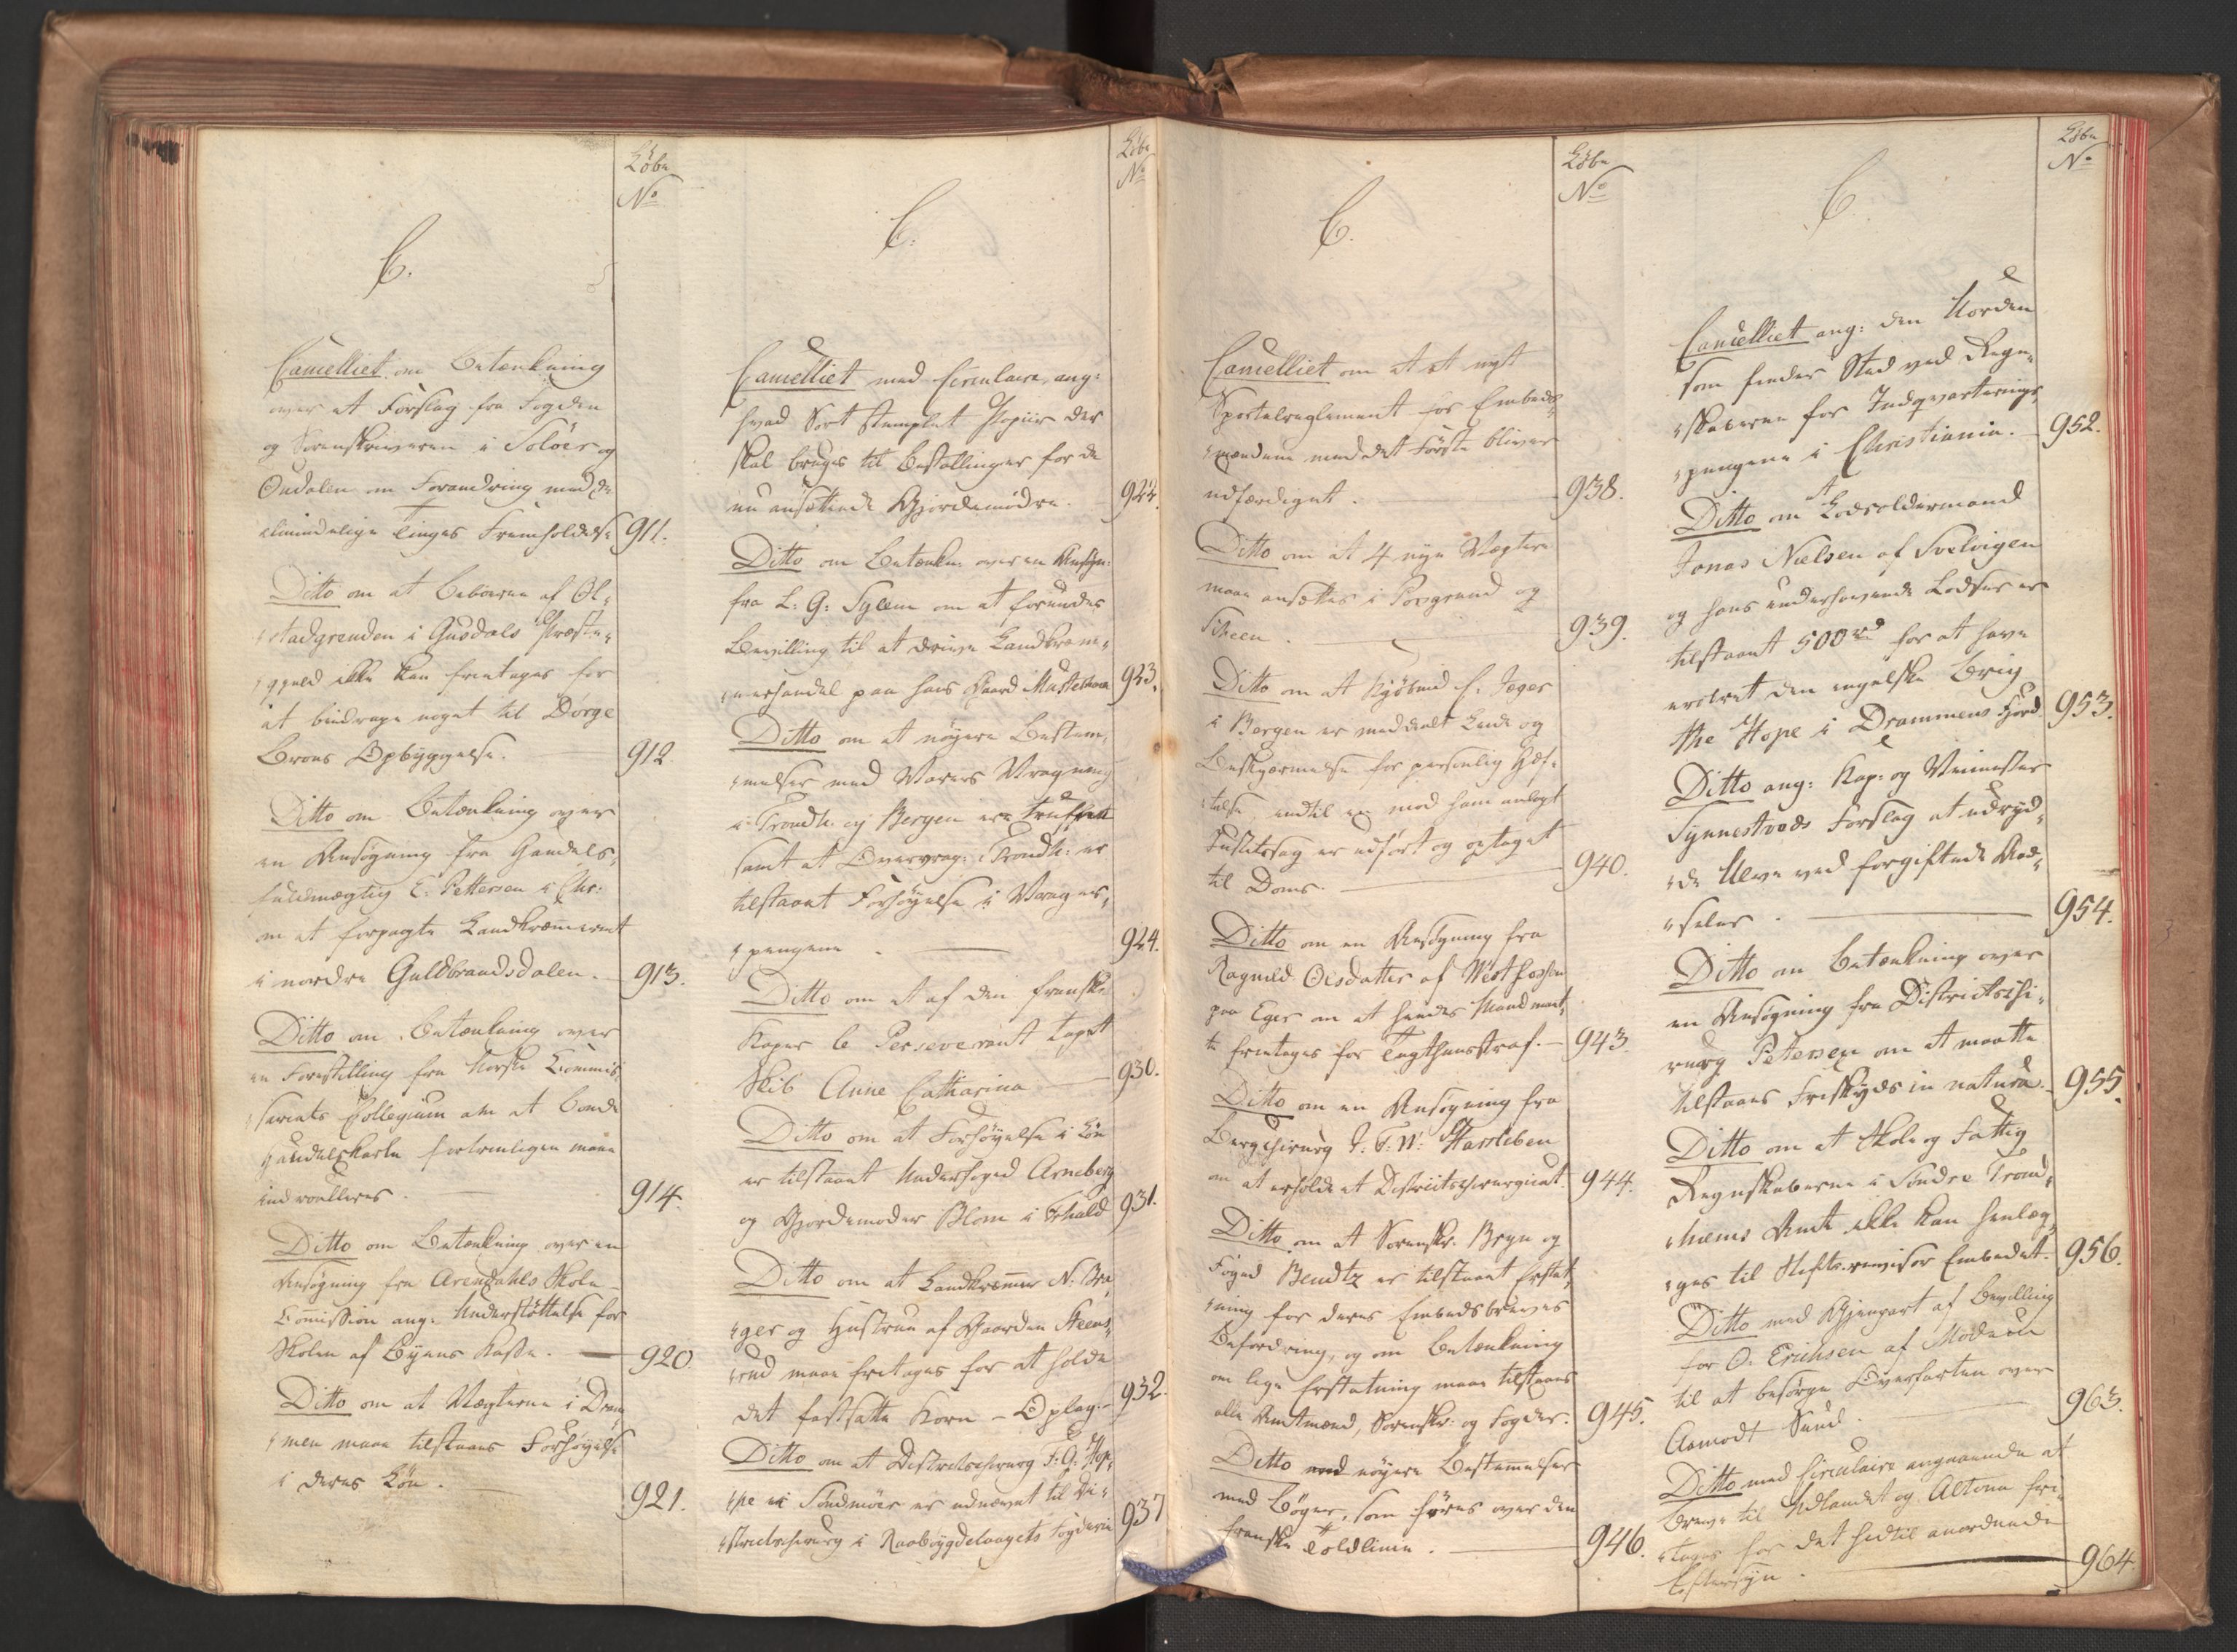 Løbe
No
C.
Cancelliet om Betænkning
over et Forslag fra Fogden
og Sorenskriveren i Soløer og
Oudalen om Forandring med de
almindelige Tinges Fremholdelse 911.
Ditto om at Beboerne af Øl-
stadgrenden i Gusdals Præste-
gield ikke kan fritages for
at bindrage noget til Dørge
Broes Opbyggelse. 912.
Ditto om Betænkning over
en Ansøgning fra Handels-
fuldmægtig E. Pettersen i Chr:
om at forpagte Landkræmmeriet
i nordre Guldbrandsdalen. 913.
Ditto om Betænkning over
en Forestilling fra Norske Commis-
sariats Collegium om at Bonde
Handelskarle fortrinligen maae
indroulleres. 914.
Ditto om Betænkning over en
Ansøgning fra Arendahls Skole
Commission ang: Understøttelse for
Skolen af Byens Kasse. 920.
Ditto om at Vægterne i Dram-
men maae tilstaaes Forhøyelse
i deres Løn. 921.
Løbe
No
C.
Cancelliet med Circulaire, ang:
hvad Sort stemplet Papiir der
skal bruges til Bestallinger for de
nu ansættende Gjordemødre. 922.
Ditto om Betænkn: over en Ansøgn:
fra L: G: Sylem om at forundes
Bevilling til at drive Landkræm-
merhandel paa hans Gaard 923.
Ditto om at nøyere Bestem-
melser med Varers Vragning
i Trondh. og Bergen ere truffne
samt at Overvrag: i Trondh: er
tilstaaet Forhøyelse i Vrager-
pengene 924.
Ditto om at af den franske
Kaper le Perseverant tagne
Skib Anne Catharina 930.
Ditto om at Forhøyelse i Løn
er tilstaaet Underfoged Arneberg
og Gjordemoder Blom i Frhald 931.
Ditto om at Landkræmmer N. Bra-
ger og Hustrue af Gaarden Steens-
rud maae fritages for at holde
det fastsatte Korn-Oplag. 932.
Ditto om at Districtschirurg F. G. Hop-
pe i Søndmøer er udnævnt til Di-
strictschirurg i Raabøygdelaugets Fogderie 937
Løbe
No
C.
Cancelliet om at et nyt
Sportelreglement for Embeds-
mændene med det Første bliver
udfærdiget. 938.
Ditto om at 4 nye Vægtere
maae ansættes i Porsgrund og
Scheen. 939.
Ditto om at Kjøbmd C. Jeger
i Bergen er meddeelt Leide og
Beskjermelse for personlig Hef-
telse, indtil en mod ham anlagt
Justitssag er udført og optaget
til Doms. 940.
Ditto om en Ansøgning fra
Ragnild Olsdatter af Westfossen
paa Eger om at hendes Mand maat-
te fritages for Tugthuusstraf. 943.
Ditto om en Ansøgning fra
Bergchirurg J. F. W. Hassleben
om at erholde et Districtschirurgicat. 944.
Ditto om at Sorenskr. Bryn og
Foged Bendtz er tilstaaet Erstat-
ning for deres Embedsbreves
Befordring, og om Betænkning
om lige Erstatning maae tilstaaes
alle Amtmænd, Sorenskr: og Fogder. 945.
Ditto med nøyere Bestemmelser
med Bøger, som føres over den
franske Toldlinie. 946.
Løbe
No
C
Cancelliet ang: den Uorden
som finder Sted ved Regn-
skaberne for Indqvarterings-
pengene i Christiania. 952.
Ditto om at Lodsoldermand
Jonas Nielsen af Svelvigen
og hans underhavende Lodser er
tilstaaet 500 rd for at have
erobret den engelske Brig
the Hope i Drammens Fjord. 953.
Ditto ang: Kap: og Veimester
Synnestvods Forslag at udryd-
de Ulve ved forgiftede Aad-
seler. 954.
Ditto om Betænkning over
en Ansøgning fra Districtschi-
rurg Petersen om at maatte
tilstaaes Friskyds in natura. 955.
Ditto om at Skole og Fattig
Regnskaberne i Søndre Trond-
hiems Amt ikke kan henlæg-
ges til Stiftsrevisor Embedet. 956.
Ditto med Gjenpart af Bevilling
for O. Erichsen af Modum
til at besørge Overfarten over
Aamodt Sund. 963.
Ditto med Circulaire angaaende at
Breve til Udlandet og Altona fri-
tages for det hidtil anordnede
Eftersyn. 964.